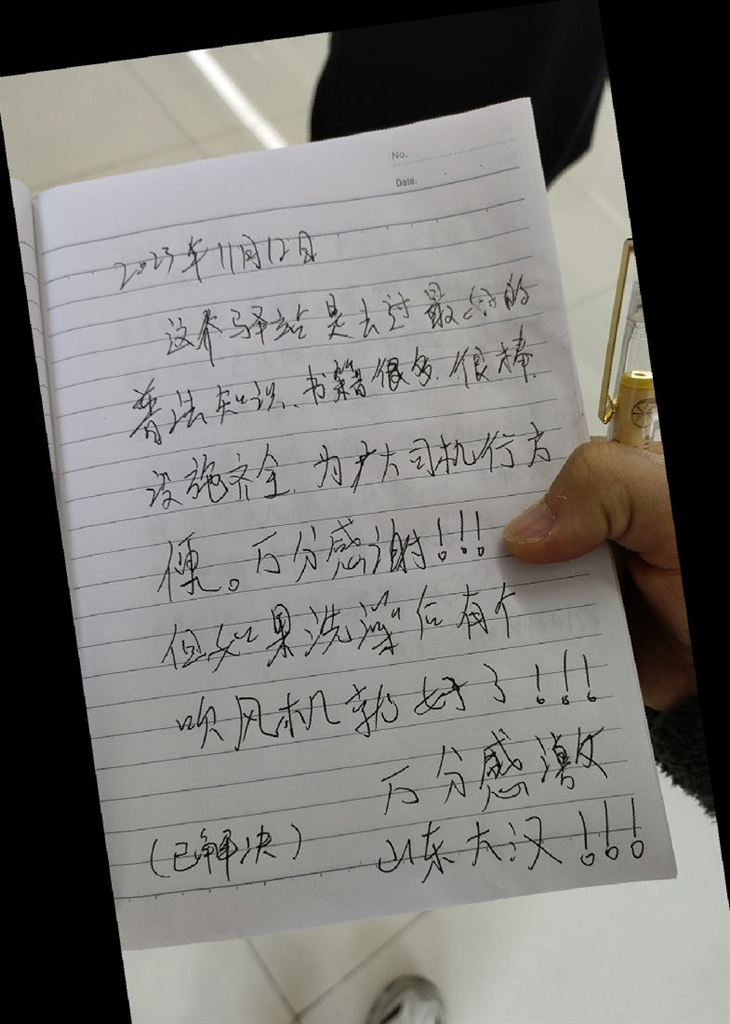 No.
Date.
2023年11月12日
这个驿站是去过最好的
普法知识、书籍很多,很棒,
设施齐全,为广大司机行方
便。万分感谢!!!
但如果洗澡后有个
吹风机就好了!!!
万分感激
(已解决)
山东大汉!!!